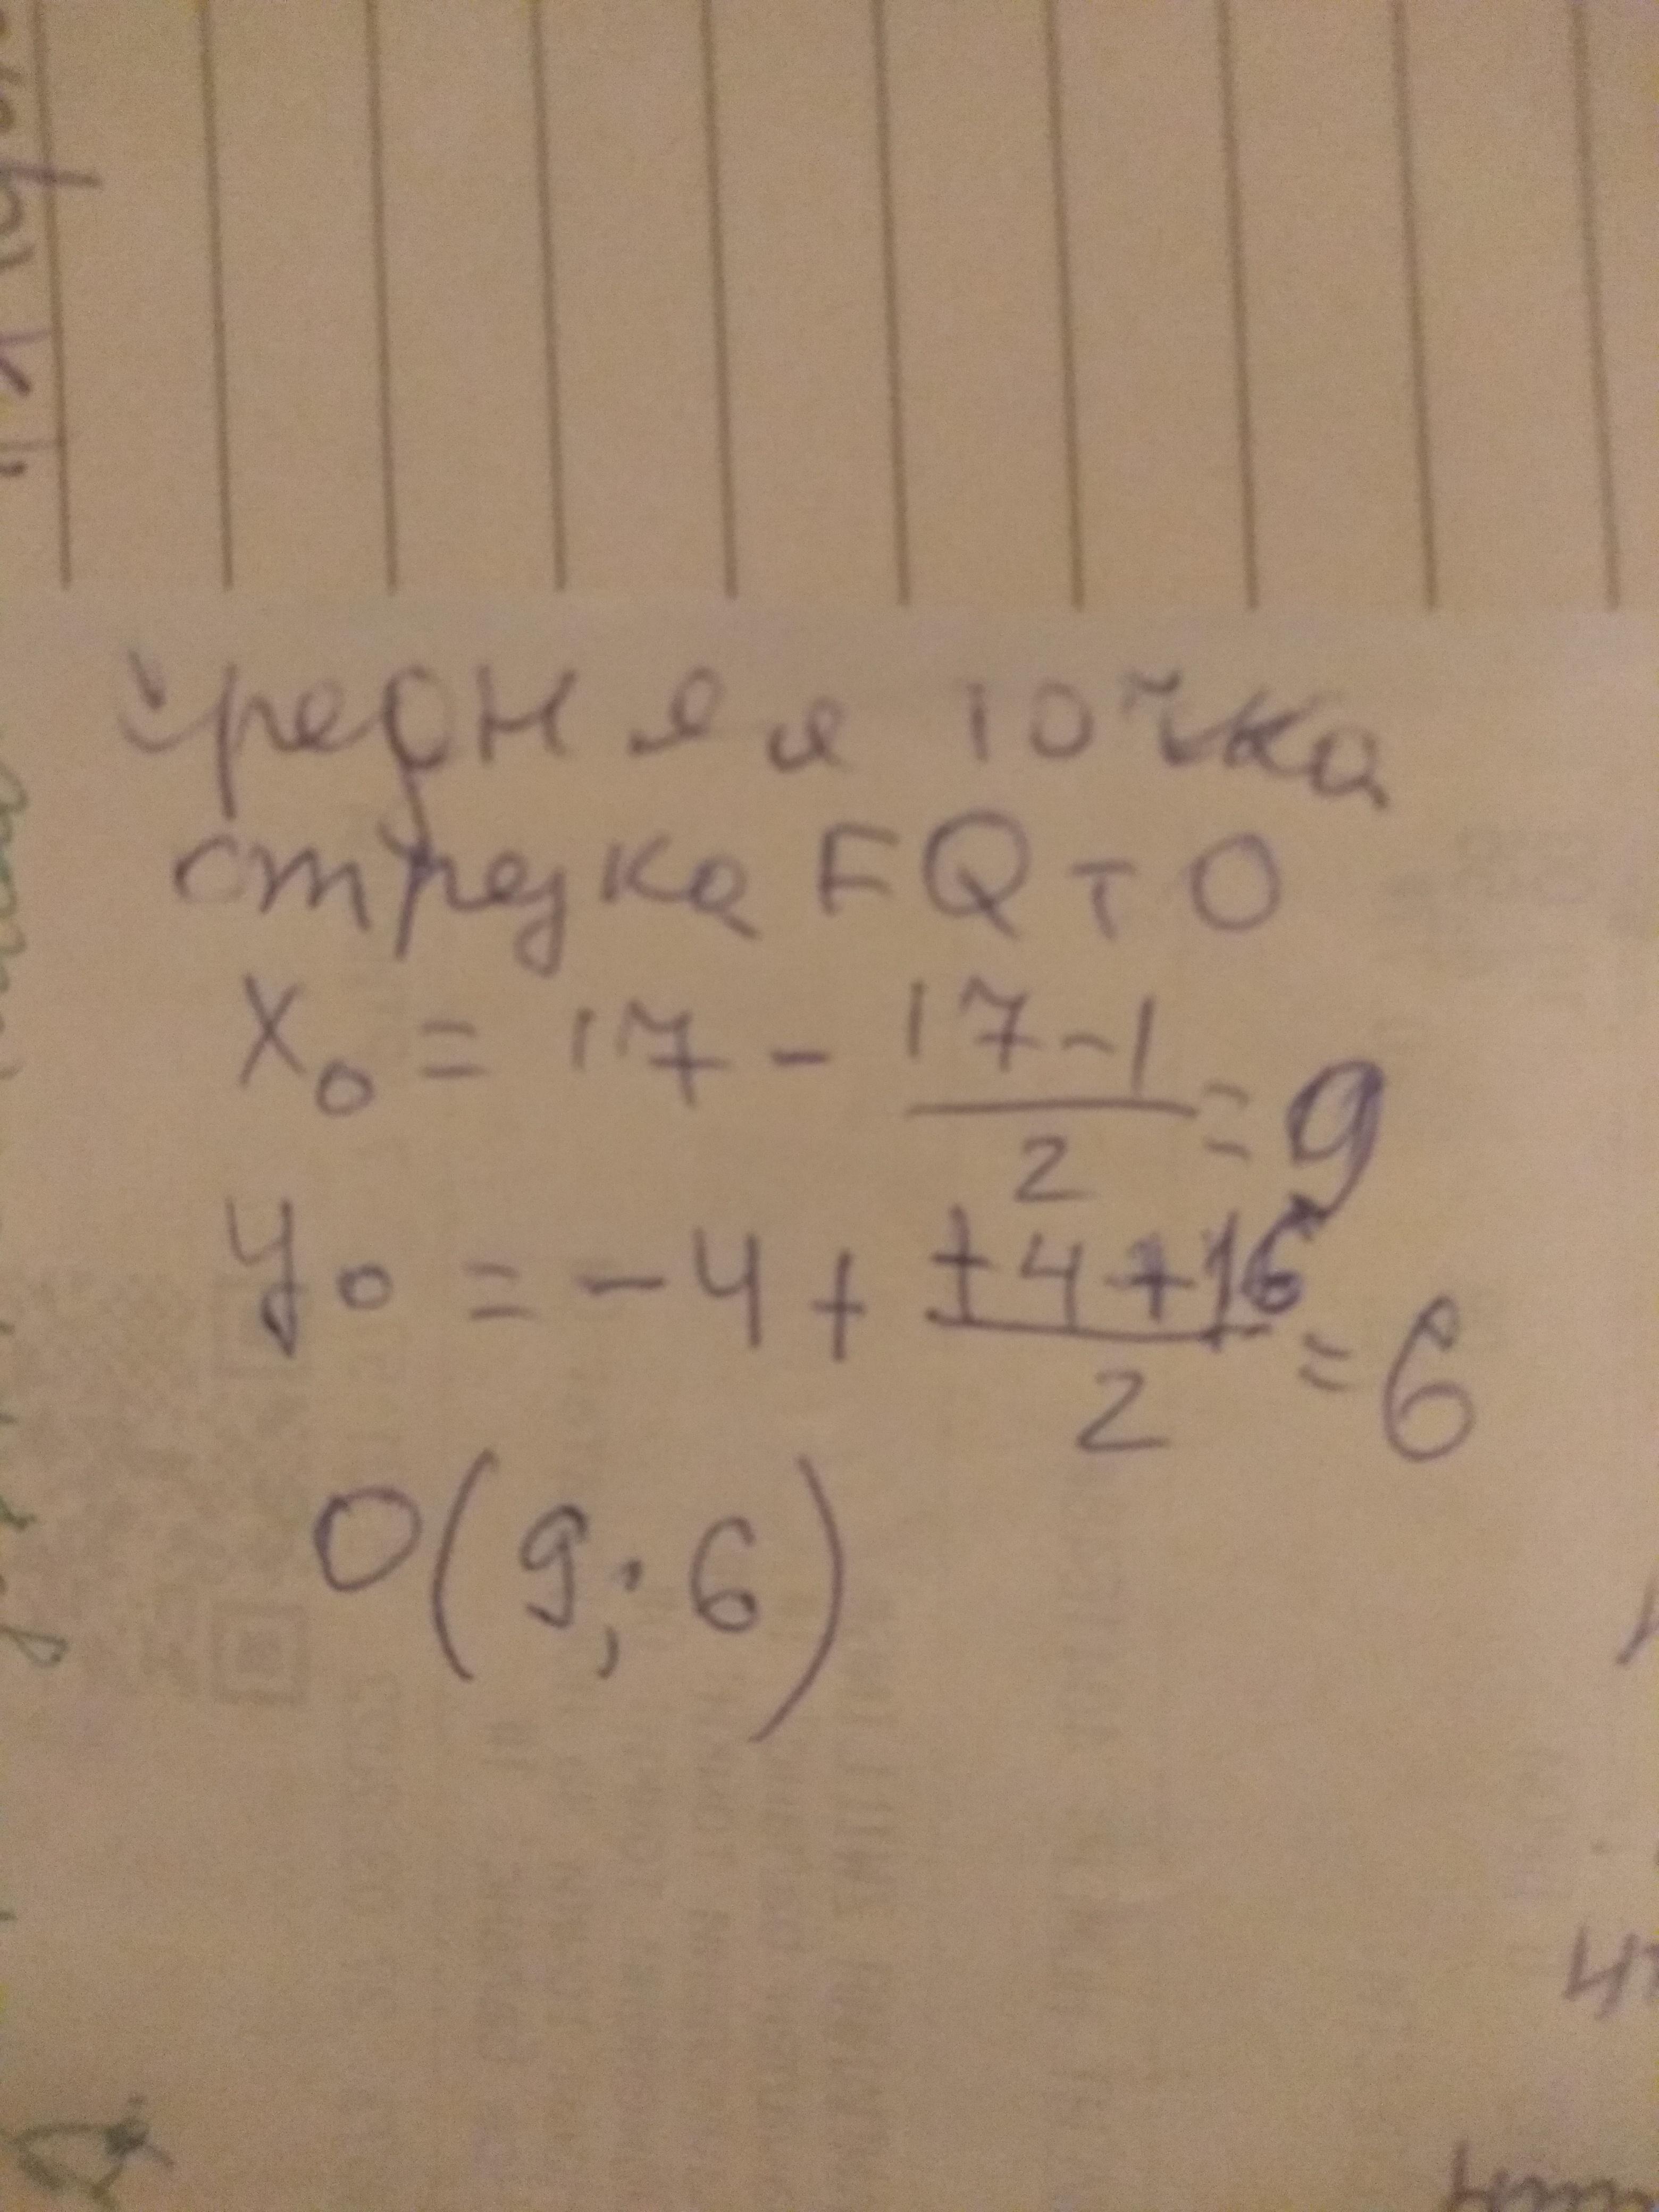 средняя точка
отрезка FQ т О
X₀ = 17 - (17-1)/2 = 9
y₀ = -4 + (+4+16)/2 = 6
O(9; 6)